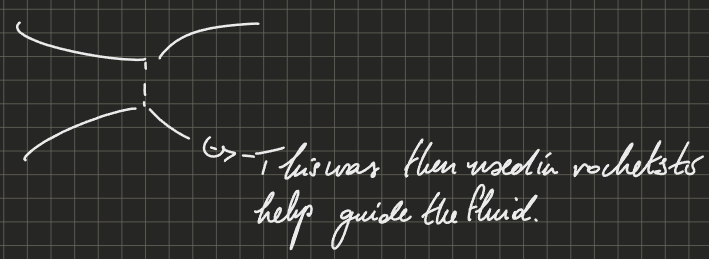 This was then used in rockets to
help guide the fluid.